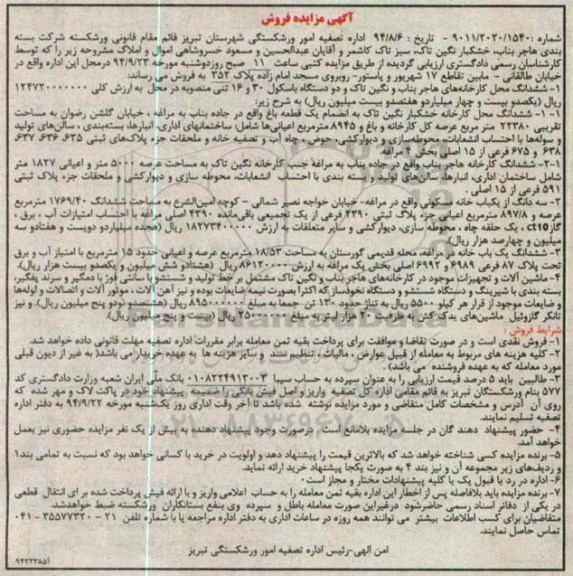 آگهی مزایده فروش
شماره : ۹۰۱۱/۲۰۲۰/۱۵۴۰ - تاریخ : ۹۴/۸/۶ اداره تصفیه امور ورشکستگی شهرستان تبریز قائم مقام قانونی ورشکسته شرکت بسته
بندی هاجر بناب، خشکبار نگین تاک، سبز تاک کاشمر و آقایان عبدالحسین و مسعود خسروشاهی اموال و املاک مشروحه زیر را که توسط
کارشناسان رسمی دادگستری ارزیابی گردیده از طریق مزایده کتبی ساعت ۱۱ صبح روزدوشنبه مورخه ۹۴/۹/۲۳ درمحل این اداره واقع در
خیابان طالقانی - مابین تقاطع ۱۷ شهریور و پاستور- روبروی مسجد امام زاده پلاک ۳۵۲ به فروش می رساند:
۱- ششدانگ محل کارخانه‌های هاجر بناب و نگین تاک و دو دستگاه باسکول ۳۰ و ۱۶ تنی منصوبه در محل به ارزش کلی ۱۲۴۷۲۰۰۰۰۰۰۰
ریال (یکصدو بیست و چهار میلیاردو هفتصدو بیست میلیون ریال) به شرح زیر:
۱-۱- ششدانگ محل کارخانه خشکبار نگین تاک به انضمام یک قطعه باغ واقع در جاده بناب به مراغه ، خیابان گلشن رضوان به مساحت
تقریبی ۲۲۳۸۰ متر مربع عرصه کل کارخانه و باغ و ۸۹۴۵ مترمربع اعیانی‌ها شامل: ساختمانهای اداری، انبارها، بسته‌بندی ، سالن‌های تولید
و سوله‌ها با احتساب انشعابات، محوطه‌سازی و دیوارکشی، حوض، چاه آب و تصفیه خانه و ملحقات جزء پلاک‌های ثبتی ۶۳۵، ۶۳۶، ۶۳۷،
۶۳۸ و ۶۷۵ فرعی از ۱۵ اصلی بخش ۴ مراغه
۱-۲- ششدانگ کارخانه هاجر بناب واقع در جاده بناب به مراغه جنب کارخانه نگین تاک به مساحت عرصه ۵۰۰۰ متر و اعیانی ۱۸۲۷ متر
شامل ساختمان اداری، انبارها، سالن‌های تولید و بسته بندی با احتساب انشعابات، محوطه سازی و دیوارکشی و ملحقات جزء پلاک ثبتی
۵۹۱ فرعی از ۱۵ اصلی .
۲- سه دانگ از یکباب خانه مسکونی واقع در مراغه- خیابان خواجه نصیر شمالی - کوچه امین‌الشرع به مساحت ششدانگ ۱۷۶۹/۴۰ مترمربع
عرصه و ۸۹۷/۸ مترمربع اعیانی جزء پلاک ثبتی ۴۳۹۰ فرعی از یک تجمیعی باقی‌مانده ۴۳۹۰ اصلی مراغه با احتساب امتیازات آب ، برق ،
گاز ct۱۰، یک حلقه چاه ، محوطه سازی، دیوارکشی و سایر متعلقات به ارزش ۱۸۲۷۳۴۰۰۰۰۰ ریال (هجده میلیاردو دویست و هفتادو سه
میلیون و چهارصد هزار ریال).
۳- ششدانگ یک باب خانه در مراغه، محله قدیمی گورستان به مساحت ۱۸/۵۳ مترمربع عرصه و اعیانی حدود ۱۵ مترمربع با امتیاز آب و برق
تحت پلاک ۸۷ فرعی ۶۹۸۹ و ۶۹۹۲ اصلی بخش یک مراغه به ارزش ۸۶۱۲۰۰۰۰ ریال (هشتادو شش میلیون و یکصدو بیست هزار ریال).
۴- ماشین آلات و تجهیزات موجود در کارخانه‌های هاجر بناب و نگین تاک مشتمل بر خط تولید و شستشو با سانتی فوژ با دمگیر و سرند پفگیر،
بسته بندی با شیرینگ و دستگاه شستشو و دستگاه نخودساز که اکثرا بصورت نیمه ضایعات بوده و نیز آهن آلات ، موتور آلات و اتصالات و لوله‌ها
و ضایعات موجود از قرار هر کیلو ۵۵۰۰ ریال به تناژ حدود ۱۳۰ تن جمعا به مبلغ ۸۹۵۰۰۰۰۰۰ ریال (هشتصدو نودو پنج میلیون ریال). و نیز
تانکر گازوئیل ماشین‌های یدک کش به ظرفیت ۲۰ هزار لیتر به مبلغ ۲۵۰۰۰۰۰۰ ریال (بیست و پنج میلیون ریال).
شرایط فروش :
۱- فروش نقدی است و در صورت تقاضا و موافقت برای پرداخت بقیه ثمن معامله برابر مقررات اداره تصفیه مهلت قانونی داده خواهد شد.
۲- کلیه هزینه های مربوط به معامله از قبیل عوارض ، مالیات ، تنظیم سند و سایر هزینه ها به عهده خریدار می باشد( به غیر از دیون قبلی
مورد معامله که به عهده فروشنده می باشد) .
۳- طالبین باید ۵ درصد قیمت ارزیابی را به عنوان سپرده به حساب سیبا ۰۱۰۸۲۲۴۹۱۳۰۰۳ بانک ملی ایران شعبه وزارت دادگستری کد
۵۷۷ بنام ورشکستگان تبریز به قائم مقامی اداره کل تصفیه واریز و اصل فیش بانکی را ضمیمه پیشنهاد خود در پاکت لاک و مهر شده که
روی آن آدرس و مشخصات کامل متقاضی و مورد مزایده نوشته شده باشد تا آخر وقت اداری روز یک‌شنبه مورخه ۹۴/۹/۲۲ به دفتر اداره
تصفیه تسلیم نمایند.
۴- حضور پیشنهاد دهنده گان در جلسه مزایده بلامانع است . درصورت وجود پیشنهاد دهنده به بیش از یک نفر مزایده حضوری نیز بعمل
خواهد آمد.
۵- برنده مزایده کسی شناخته خواهد شد که بالاترین قیمت را پیشنهاد دهد و اولویت در خرید با کسانی خواهد بود که نسبت به تمامی بند۱
و ردیف‌های زیر مجموعه آن و نیز بند ۴ به صورت یکجا پیشنهاد خرید ارائه نماید.
۶- اداره در رد یا قبول یک یا کلیه پیشنهادات مختار و مجاز است.
۷- برنده مزایده باید بلافاصله پس از اخطار این اداره بقیه ثمن معامله را به حساب اعلامی واریز و با ارائه فیش پرداخت شده برای انتقال قطعی
در یکی از دفاتر اسناد رسمی حاضرشود درغیراین صورت معامله باطل و سپرده وی بنفع بستانکاران ورشکسته ضبط خواهدشد.
متقاضیان برای کسب اطلاعات بیشتر می توانند همه روزه در ساعات اداری به دفتر اداره مراجعه یا با شماره تلفن ۲۱ - ۳۵۵۷۷۳۲۰ -۰۴۱
تماس حاصل نمایند.
امن الهی-رئیس اداره تصفیه امور ورشکستگی تبریز
۹۴۲۲۳۸۵آ